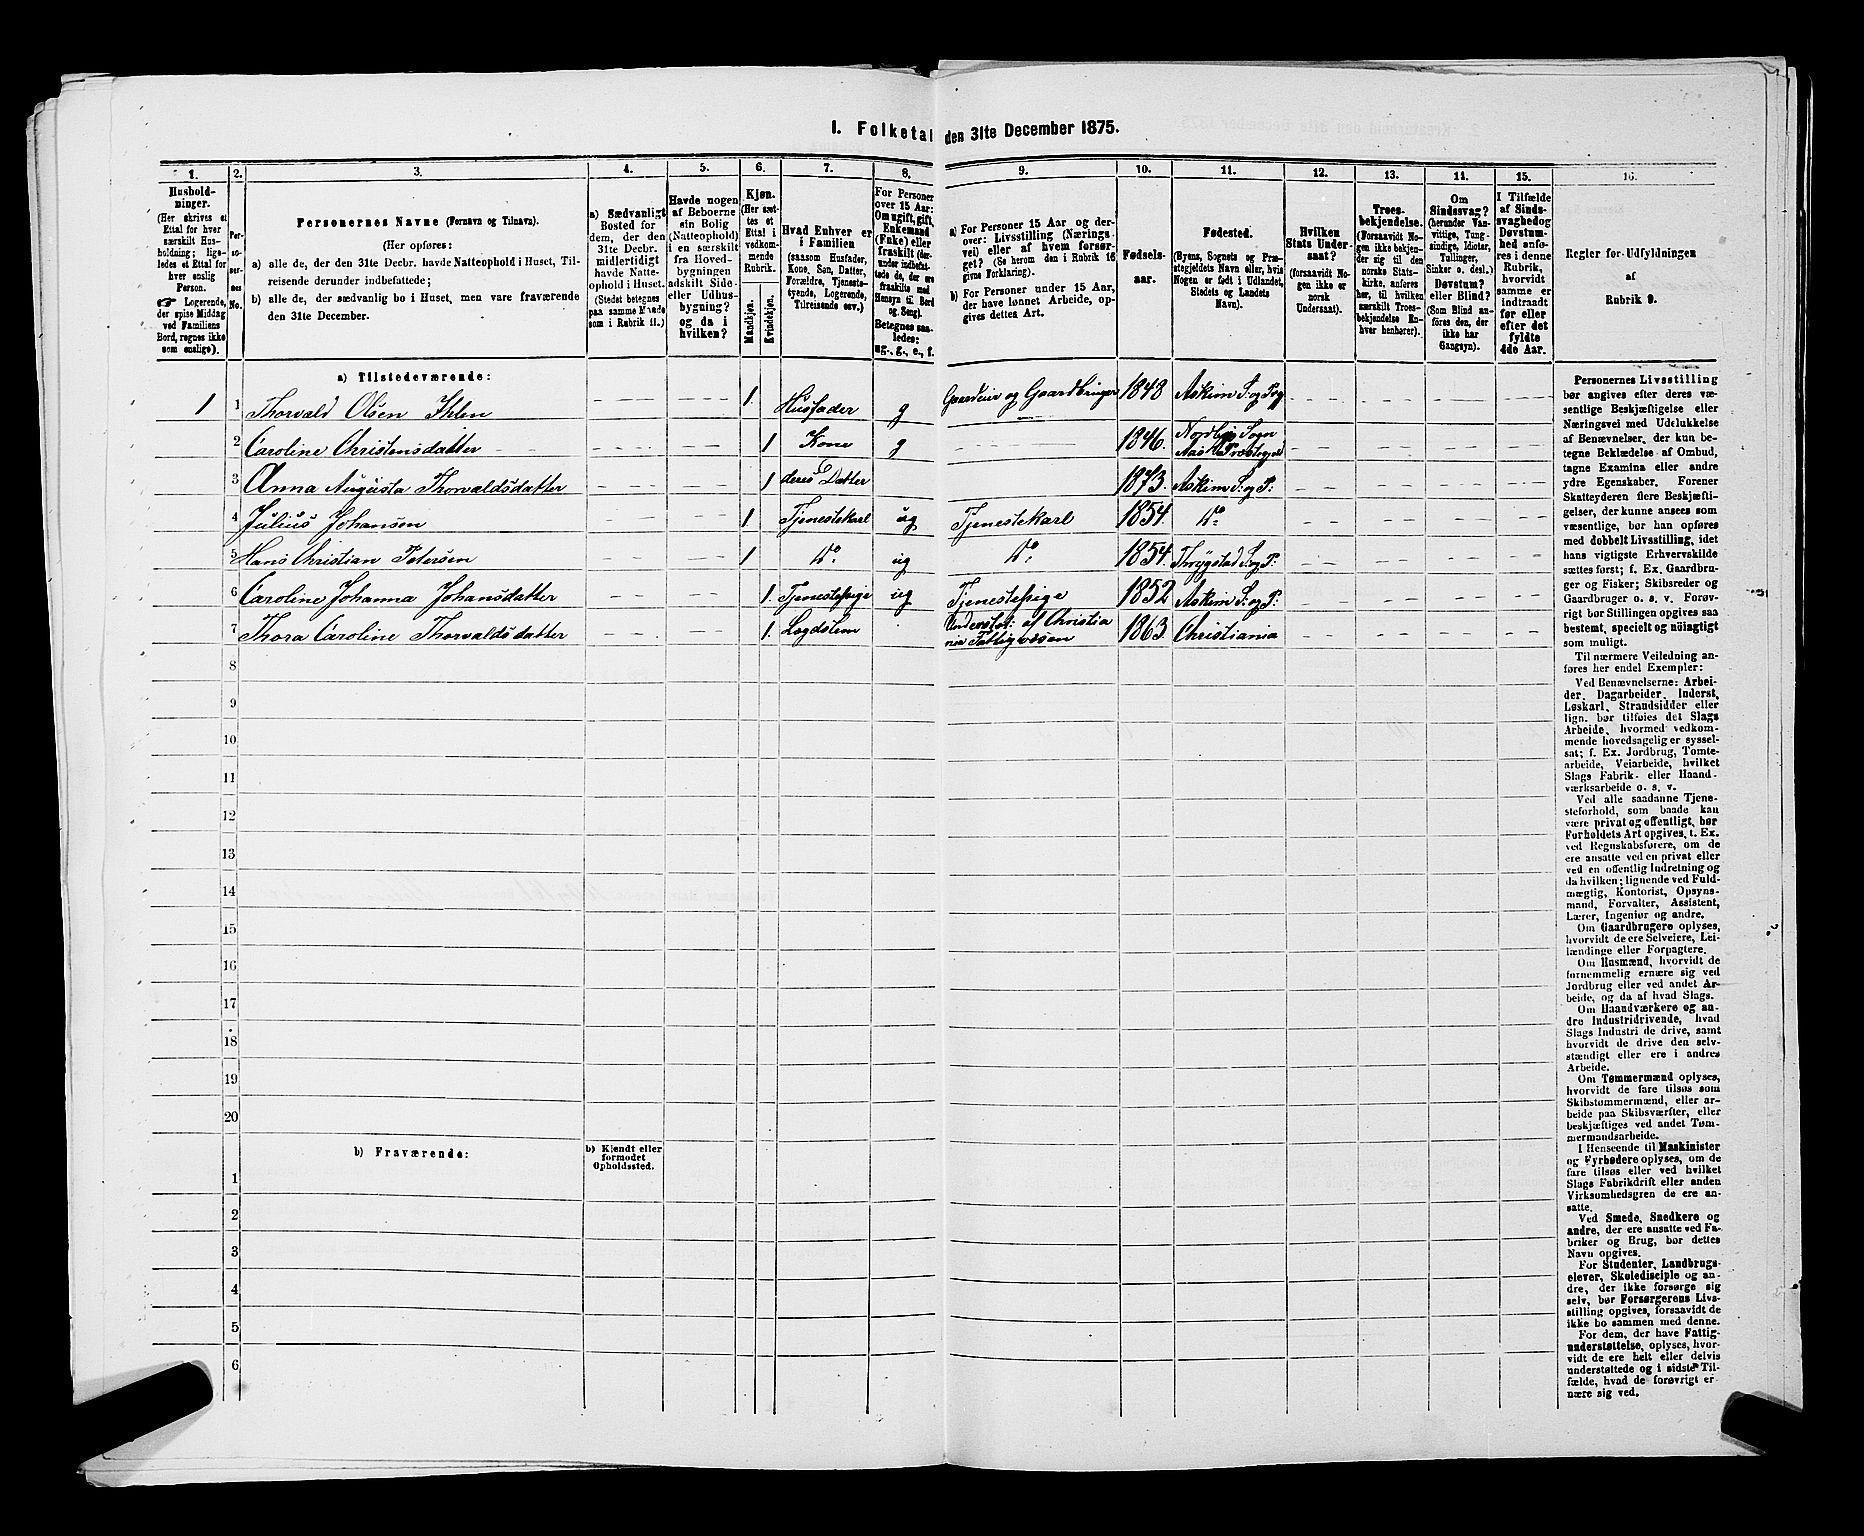 1. Folketal den 31te December 1875.
1.
Hushold-
ninger.
(Her skrives et
Ettal for hver
særskilt Hus-
holdning; lige-
ledes et Ettal for
hver enslig
Person.
☛ Logerende,
der spise Middag
ved Familiens
Bord, regnes ikke
som enslige).
2.
Per-
so-
ner-
nes
No.
3.
Personernes Navne (Fornavn og Tilnavn).
(Her opføres:
a) alle de, der den 31te Decbr. havde Natteophold i Huset, Til-
reisende derunder indbefattede;
b) alle de, der sædvanlig bo i Huset, men vare fraværende
den 31te December.
4.
a) Sædvanligt
Bosted for
dem, der den
31te Decbr.
midlertidigt
havde Natte-
ophold i Huset.
(Stedet betegnes
paa samme Maade
som i Rubrik 11.)
5.
Havde nogen
af Beboerne
sin Bolig
(Natteophold)
i en særskilt
fra Hoved-
bygningen
adskilt Side-
eller Udhus-
bygning?
og da i
hvilken?
6.
Kjøn.
(Her sæt-
tes et
Ettal i
vedkom-
mende
Rubrik.
Mandkjøn.
Kvindekjøn.
7.
Hvad Enhver er
i Familien
(saasom Husfader,
Kone, Søn, Datter,
Forældre, Tjeneste-
tyende, Logerende,
Tilreisende osv.)
8.
For Personer
over 15 Aar:
Om ugift, gift,
Enkemand
(Enke) eller
fraskilt (der-
under indbefat-
tede de, der ere
fraskilte med
Hensyn til Bord
og Seng).
Betegnes saa-
ledes:
ug., g., e., f.
9.
a) For Personer 15 Aar og der-
over: Livsstilling (Nærings-
vei) eller af hvem forsør-
get? (Se herom den i Rubrik 16
givne Forklaring).
b) For Personer under 15 Aar,
der have lønnet Arbeide, op-
gives dettes Art.
10.
Fødsels-
aar.
11.
Fødested.
(Byens, Sognets og Præ-
stegjeldets Navn eller, hvis
Nogen er født i Udlandet,
Stedets og Landets
Navn).
12.
Hvilken
Stats Under-
saat?
(forsaavidt No-
gen ikke er
norsk
Undersaat).
13.
Troes-
bekjendelse.
(Forsaavidt No-
gen ikke bekjen-
der sig til den
norske Stats-
kirke, anføres
her, til hvilken
særskilt Troes-
bekjendelse En-
hver henhører).
14.
Om
Sindssvag?
(herunder Van-
vittige, Tung-
sindige, Idioter,
Tullinger,
Sinker o. desl.)
Døvstum?
eller Blind?
(Som Blind an-
føres den, der
ikke har
Gangsyn).
15.
I Tilfælde
af Sinds-
svaghed og
Døvstum-
hed anfø-
res i denne
Rubrik,
hvorvidt
samme er
indtraadt
før eller
efter det
fyldte
4de Aar.
16.
Regler for Udfyldningen
af
Rubrik 9.
a) Tilstedeværende:
1 1 Thorvald Olsen Ihlen 1. Husfader g Gaardeier og Gaardbruger 1848 Askim S. og Pg
2 Caroline Christensdatter 1 Kone g 1846. Nordby Sogn
Aas Præstegjd
3 Anna Augusta Thorvaldsdatter 1 deres Datter 1873. Askim S. og P:
4 Julius Johansen 1 Tjenestekarl ug Tjenestekarl 1854. Do
5 Hans Christian Petersen 1 Do. ug Do. 1854. Thrygstad S. og P:
6 Caroline Johanna Johansdatter 1. Tjenestepige ug Tjenestepige 1852 Askim S. og P:
7 Thora Caroline Thorvaldsdatter 1. Lægdslem Understøt: af Christia
nia Fattigvæsen 1863. Christiania
8
9
10
11
12
13
14
15
16
17
18
19
20
b) Fraværende:
b) Kjendt eller
formodet
Opholdssted.
1
2
3
4
5
6
Personernes Livsstilling
bør angives efter deres væ-
sentlige Beskjæftigelse eller
Næringsvei med Udelukkelse
af Benævnelser, der kun be-
tegne Beklædelse af Ombud,
tagne Examina eller andre
ydre Egenskaber. Forener
Skatteyderen flere Beskjæfti-
gelser, der kunne ansees som
væsentlige, bør han opføres
med dobbelt Livsstilling, idet
hans vigtigste Erhvervskilde
sættes først; f. Ex. Gaardbru-
ger og Fisker; Skibsreder og
Gaardbruger o. s. v. Forøv-
rigt bør Stillingen opgives saa
bestemt, specielt og nøiagtigt
som muligt.
Til nærmere Veiledning an-
føres her endel Exempler:
Ved Benævnelserne: Arbei-
der, Dagarbeider, Inderst,
Løskarl, Strandsidder eller
lign. bør tilføies det Slags
Arbeide, hvormed vedkom-
mende hovedsagelig er syssel-
sat; f. Ex. Jordbrug, Tomte-
arbeide, Veiarbeide, hvilket
Slags Fabrik- eller Haand-
værksarbeide o. s. v.
Ved alle saadanne Tjene-
steforhold, som baade kan
være privat og offentligt, bør
Forholdets Art opgives, t. Ex.
ved Regnskabsførere, om de
ere ansatte ved en privat eller
ved en offentlig Indretning og
da hvilken; lignende ved Fuld-
mægtig, Kontorist, Opsyns-
mand, Forvalter, Assistent,
Lærer, Ingeniør og andre.
Om Gaardbrugere oplyses,
hvorvidt de ere Selveiere, Lei-
lændinge eller Forpagtere.
Om Husmænd, hvorvidt de
fornemmelig ernære sig ved
Jordbrug eller ved andet Ar-
beide, og da af hvad Slags.
Om Haandværkere og an-
dre Industridrivende, hvad
Slags Industri de drive, samt
hvorvidt de drive den selv-
stændigt eller ere i andres
Arbeide.
Om Tømmermænd oplyses,
hvorvidt de fare tilsøs som
Skibstømmermænd, eller ar-
beide paa Skibsværfter, eller
beskjæftiges ved andet Tøm-
mermandsarbeide.
I Henseende til Maskinister
og Fyrbødere oplyses, om de
fare tilsøs eller ved hvilket
Slags Fabrikdrift eller anden
Virksomhedsgren de ere an-
satte.
Ved Smede, Snedkere og
andre, der ere ansatte ved Fa-
briker og Brug, bør dettes
Navn opgives.
For Studenter, Landbrugs-
elever, Skoledisciple og an-
dre, der ikke forsørge sig
selv, bør Forsørgerens Livs-
stilling opgives, forsaavidt de
ikke bo sammen med denne.
For dem, der have Fattig-
understøttelse, oplyses, hvor-
vidt de ere helt eller delvis
understøttede og i sidste Til-
fælde, hvad de forøvrigt er-
nære sig ved.